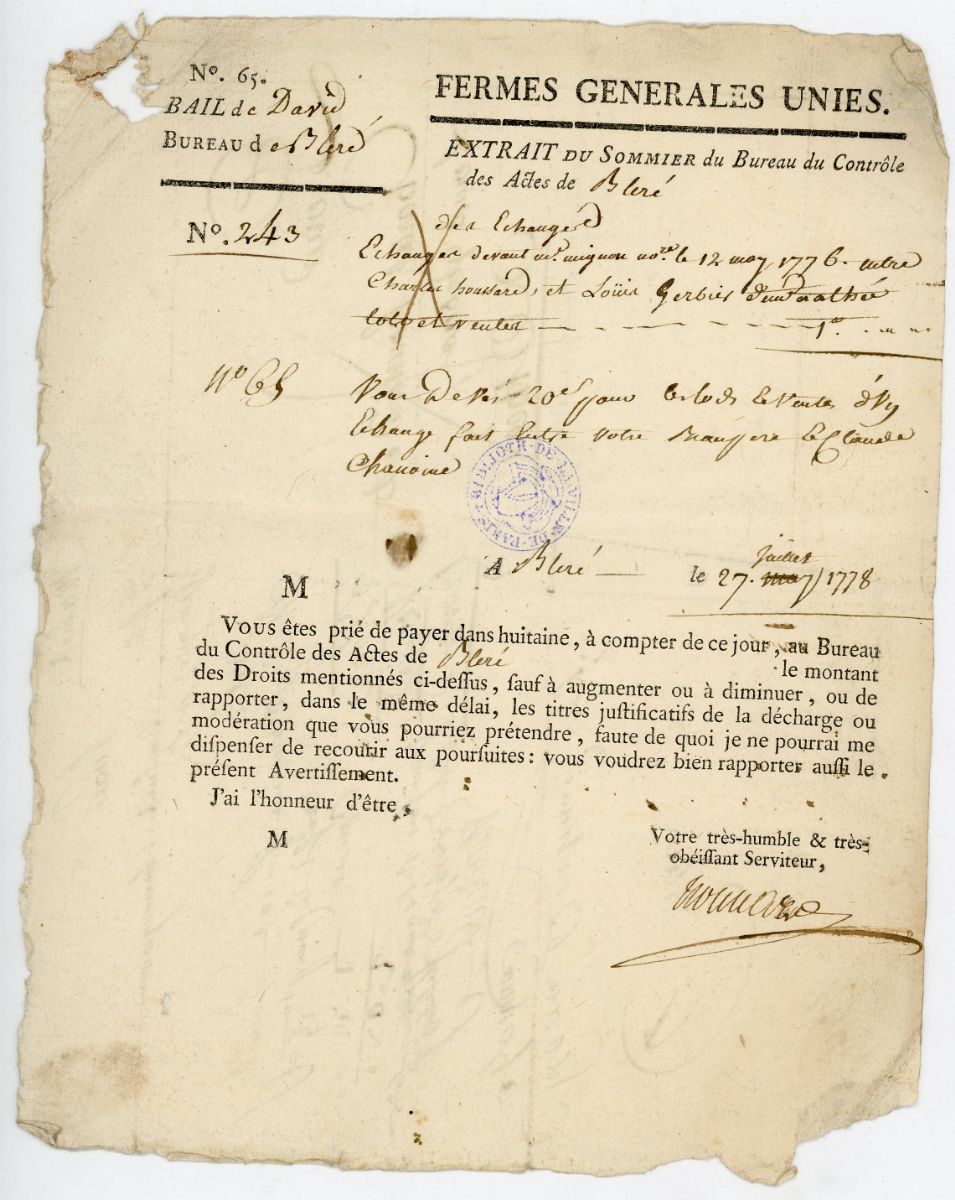 Nº. 65.
BAIL de David
BUREAU de Bleré
FERMES GENERALES UNIES.
EXTRAIT DU SOMMIER du Bureau du Contrôle
des Actes de Bleré
Nº. 243
des Echanges
Echanges devant me. mignon nore. le 12 may 1776. entre
Charles houssard, et Loüis Gerbier
lots et ventes
Nº 65
Vous Devés 20 pour les lods et Ventes d'Un
Echange fait Entre Votre Beaupere et Claude
Chanoine
BIBLIOTH. DE LA VILLE DE PARIS
A Bleré le 27. may juillet 1778
M
Vous êtes prié de payer dans huitaine, à compter de ce jour, au Bureau
du Contrôle des Actes de Bleré le montant
des Droits mentionnés ci-dessus, sauf à augmenter ou à diminuer, ou de
rapporter, dans le même délai, les titres justificatifs de la décharge ou
modération que vous pourriez prétendre, faute de quoi je ne pourrai me
dispenser de recourir aux poursuites : vous voudrez bien rapporter aussi le
présent Avertissement.
J'ai l'honneur d'être,
M
Votre très-humble & très-
obéissant Serviteur,